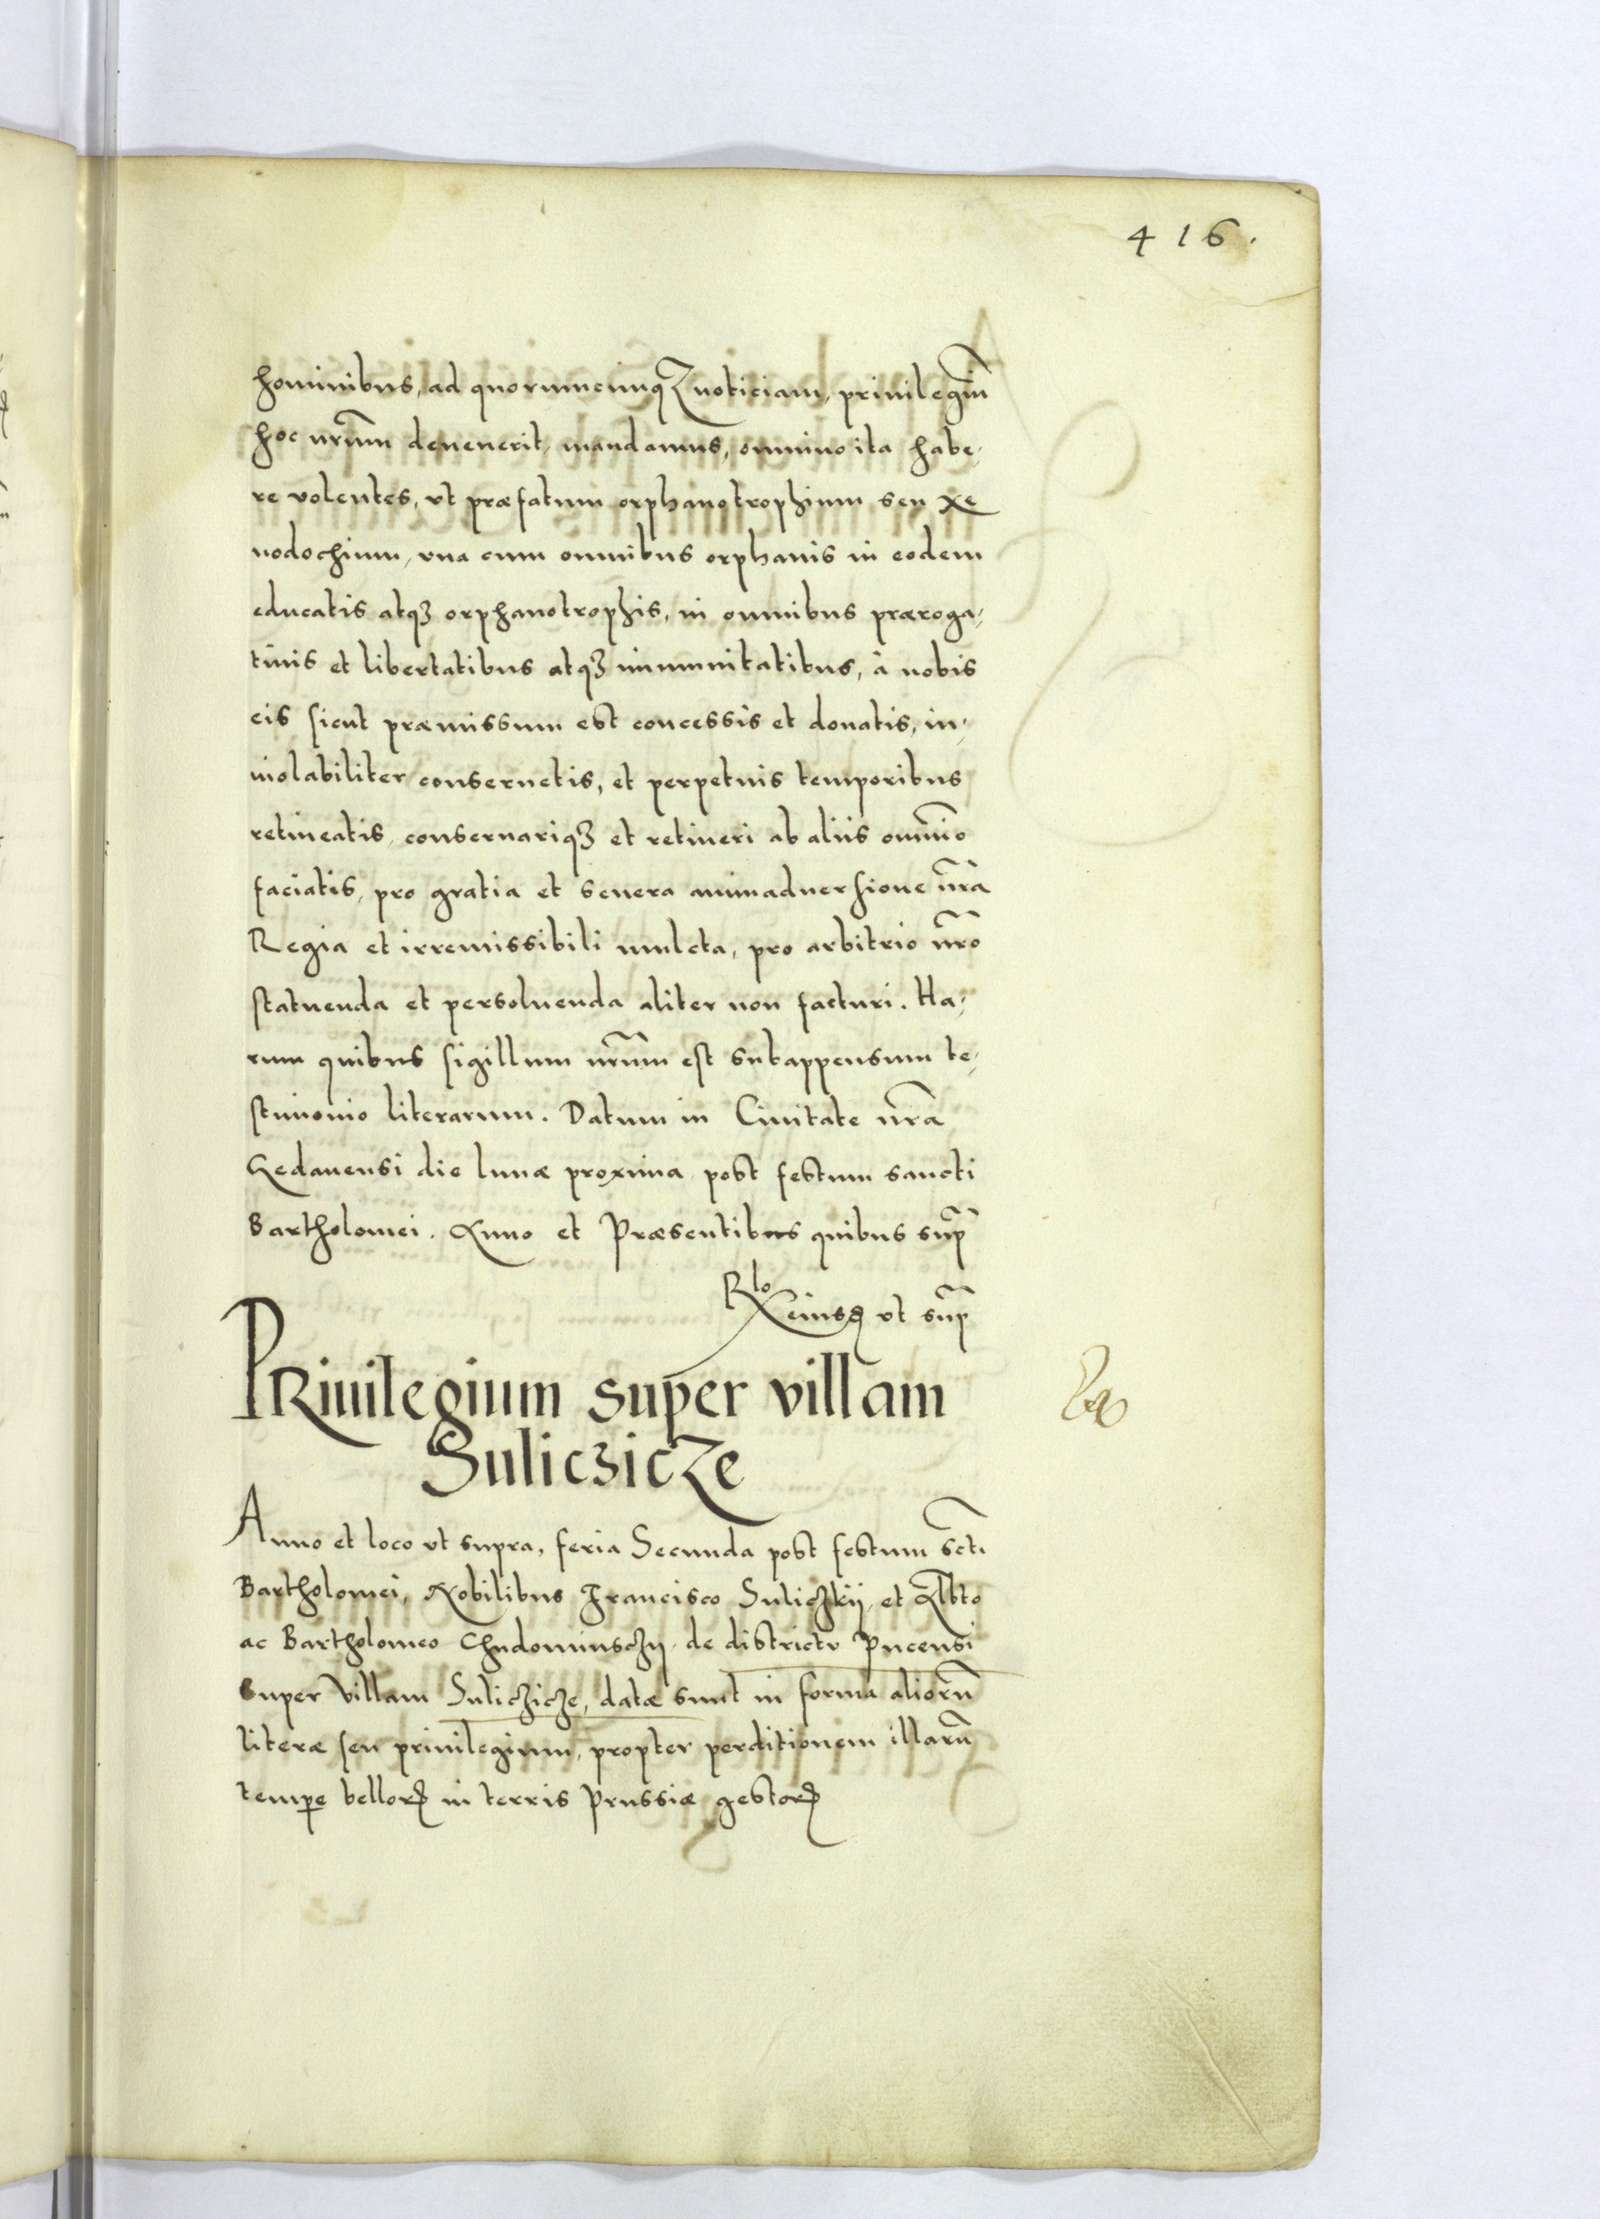 416.
hominibus, ad quorumcunqȝ noticiam, priuilegiū
hoc nr̄um deuenerit, mandamus, omnino ita habe,
re volentes, vt præfatum orphanotrophium seu xe
nodochium, vna cum omnibus orphanis in eodem
educatis atqȝ orphanotrophis, in omnibus præroga,
tiuis et libertatibus atqȝ immunitatibus, à nobis
eis sicut præmissum est concessis et donatis, in,
uiolabiliter conseruetis, et perpetuis temporibus
retineatis, conseruariqȝ et retineri ab aliis omnīo
faciatis, pro gratia et seuera animaduersione nr̄a
Regia et irremissibili mulcta, pro arbitrio nr̄o
statuenda et persoluenda aliter non facturi. Ha,
rum quibus sigillum nr̄um est subappensum te,
stimonio literarum. Datum in Ciuitate nr̄a
Gedanensi die lunæ proxima post festum sancti
Bartholomei. Anno et Præsentibus quibus sup̄
Rlo eiusd vt sup̄
PRiuilegium super villam
Sulicȝicze
Anno et loco vt supra, feria Secunda post festum sc̄ti
Bartholomei, Nobilibus Francisco Suliczkij, et Alb̄to
ac Bartholomeo Chudominsczij, de districtu Pucensi
super villam Suliczicze, datæ sunt in forma aliorū
literæ seu priuilegium, propter perditionem illarū
tempe belloꝝ in terris Prussiæ gestoꝝ